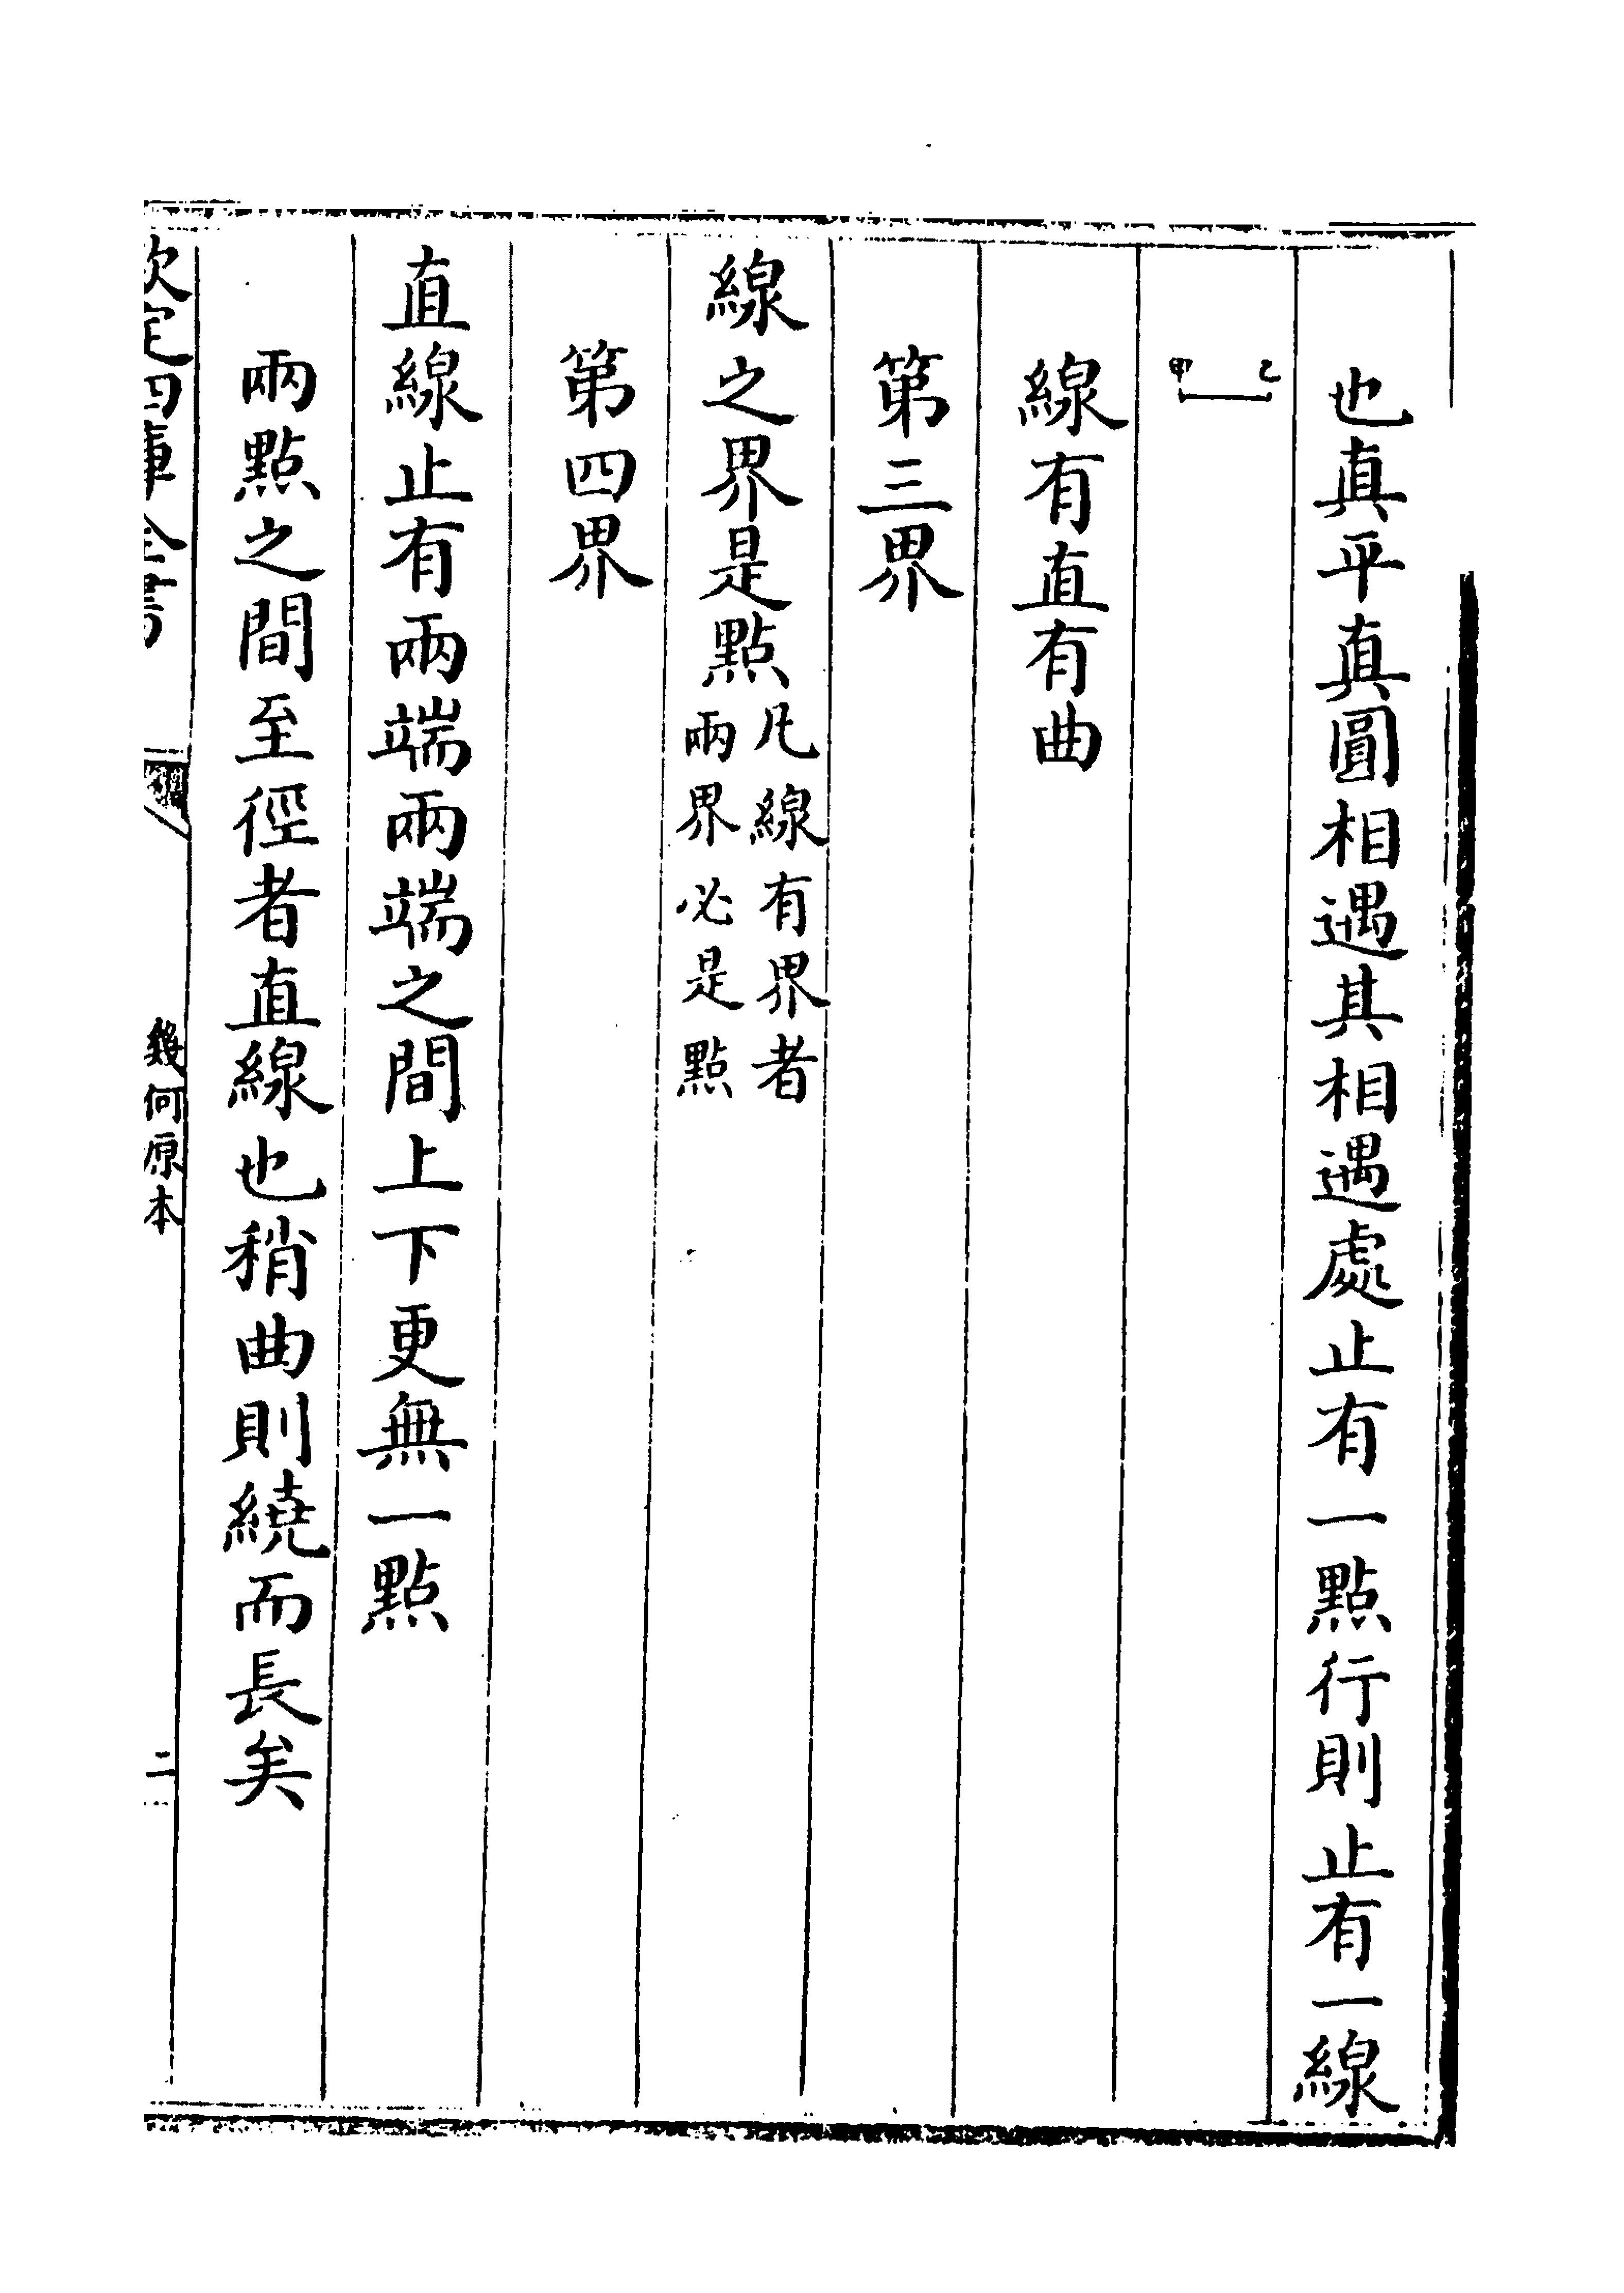 也真平真圓相遇其相遇處止有一點行則止有一線
甲 乙
線有直有曲
第三界
線之界是點凡線有界者
兩界必是點
第四界
直線止有兩端兩端之間上下更無一點
兩點之間至徑者直線也稍曲則繞而長矣
欽定四庫全書 幾何原本 二